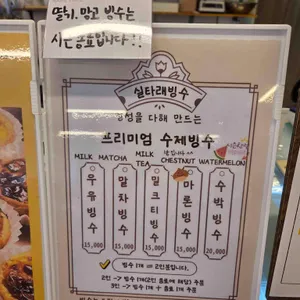 딸기, 망고 빙수는
시즌종료입니다!!
실타래빙수
정성을 다해 만드는
프리미엄 수제빙수
MILK
우유빙수
15,000
MATCHA
말차빙수
15,000
MILK TEA
밀크티빙수
15,000
CHESTNUT
마론빙수
15,000
WATERMELON
수박빙수
20,000
빙수 1개 = 2인분입니다.
2인 -> 빙수 1개(2인 음료에 해당) 주문
3인 -> 빙수 1개 + 음료 1개 주문